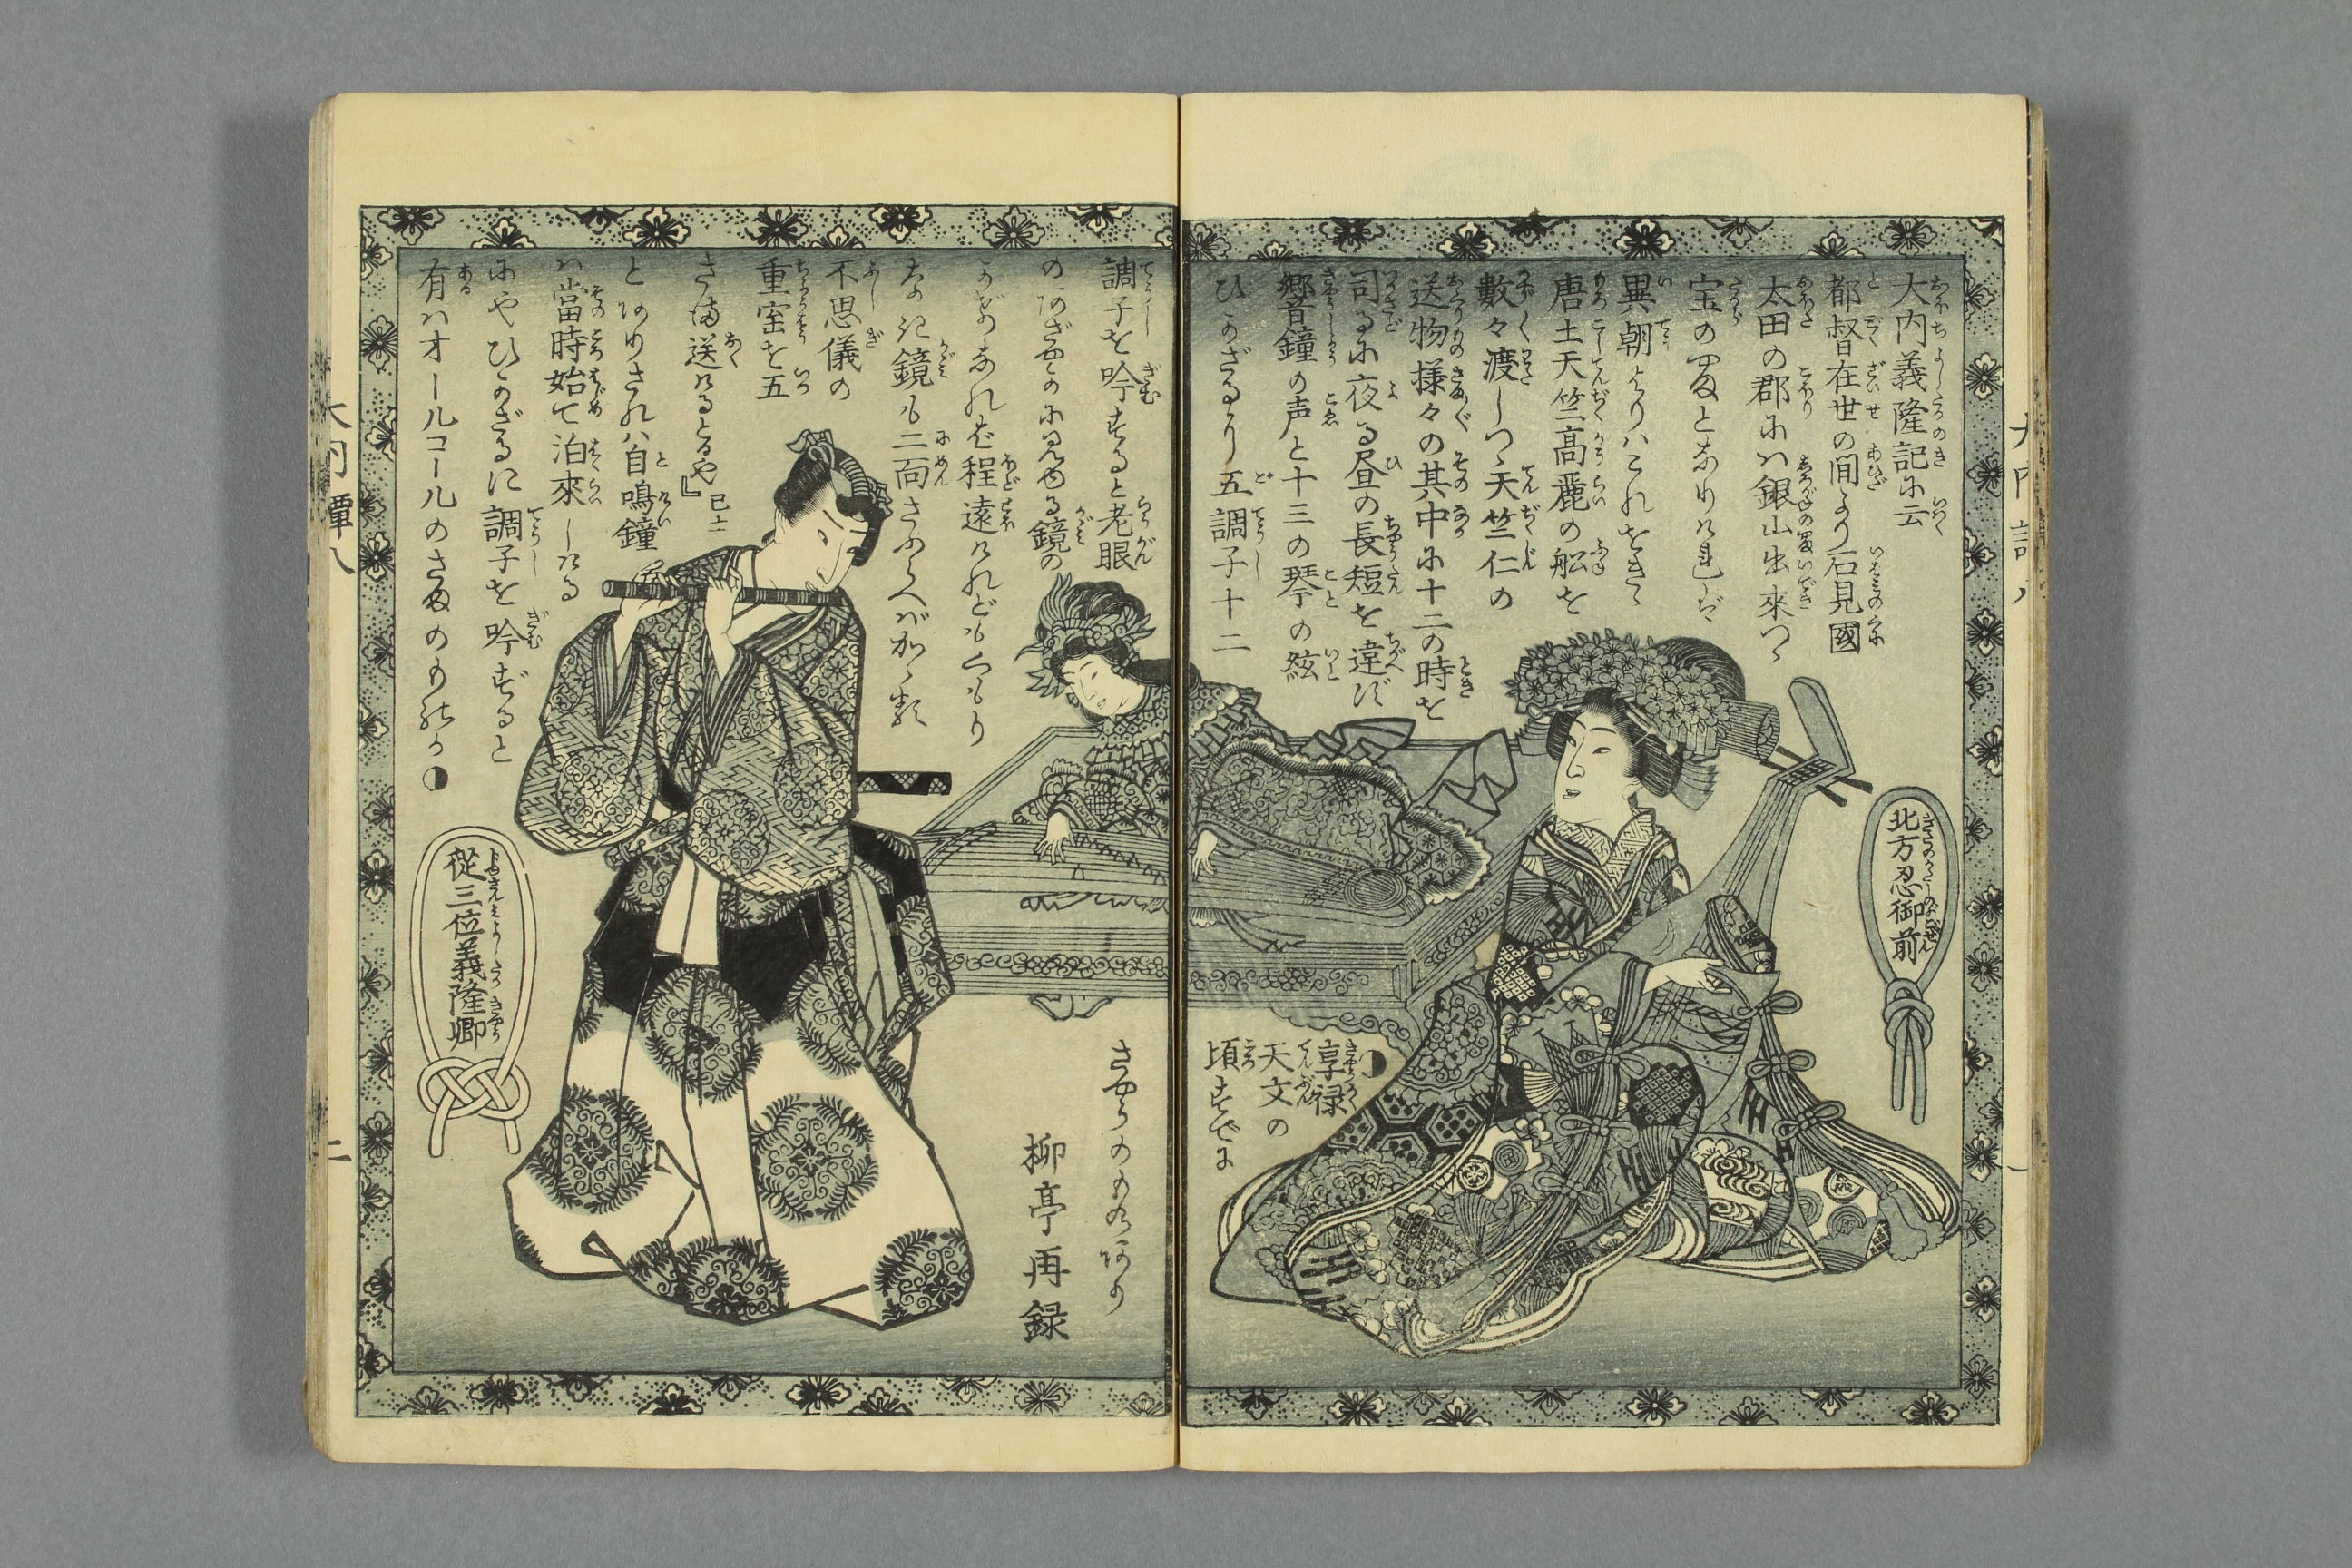 大内義隆記に云
都督在世の間より石見國
太田の郡にハ銀山出來つゝ
宝の山となりければ
異朝よりハこれをきゝ
唐土天竺高麗の船を
數々渡しつゝ天竺仁の
送物様々の其中に十二の時を
司るに夜る昼の長短を違へず
響鐘の声と十三の琴の絃
ひかざるより五調子十二
調子を吟ずると老眼
のあざやかに見ゆる鏡の
かげなれば程遠けれども
くもりなき鏡も二面さふらへバかゝる
不思儀の
重宝を五
さま送けるとや』
とありされハ自鳴鐘
ハ當時始て泊來しける
にやひかざるに調子を吟ずると
有ハオールコールのさまのものか
享禄
天文の
頃すでに
さやうのものあり
柳亭再録
北方忍御前
從三位義隆卿